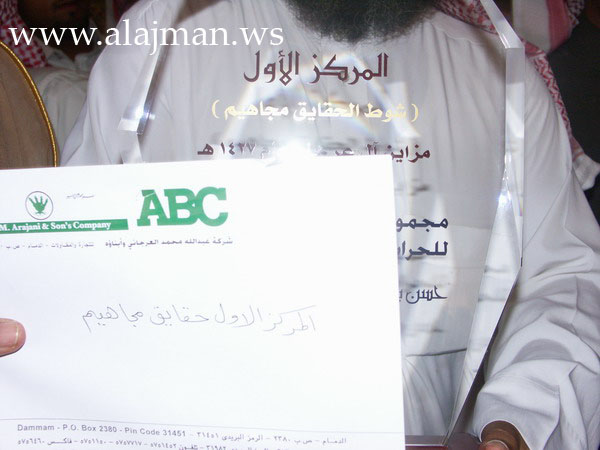 www.alajman.ws
المركز الأول
( شوط الحقايق مجاهيم )
مزاين ١٤٢٧ هـ
مجمو
للحرا
حسن
ABC
M. Arajani & Son's Company
شركة عبدالله محمد العرجاني وأبناؤه
المركز الاول حقايق مجاهيم
Dammam - P.O. Box 2380 - Pin Code 31451
الدمـام - ص ب ٢٣٨٠ - الرمز البريدي ٣١٤٥١